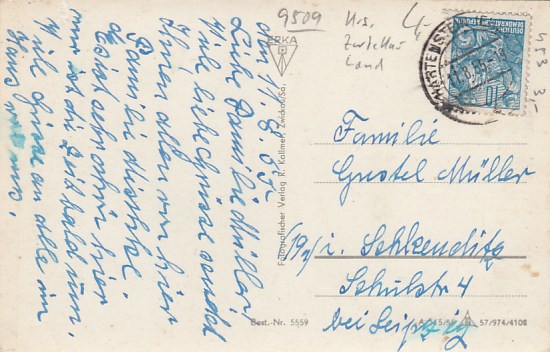 9509
Krs.
Zwickau
Land
4,-
ERKA
HARTENSTEIN
DEUTSCHE
DEMOKRATISCHE
10
3,-
den 11. 8.
Liebe Familie Müller
Viele liebe Grüsse sendet
Ihnen allen von hier
Familie
Es ist sehr schön hier
nur ist die Zeit bald um.
Viele Grüsse an alle im
Haus
Familie
Gustel Müller
i. Schkeuditz
Schulstr 4
bei Leipzig
Fotografischer Verlag R. Kallmer, Zwickau/Sa.
Best.-Nr. 5559
57/974/4108